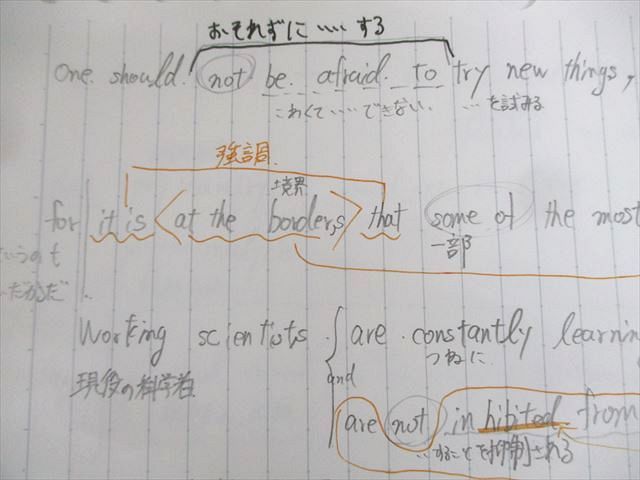 おそれずに‥‥する
One should not be afraid to try new things,
こわくて‥‥できない. …を試みる
強調
境界
for it is <at the borders> that some of the most
というのも 一部
だからだ
Working scientists are constantly learnin
つねに
and
現役の科学者
are not inhibited from
…することを抑制される